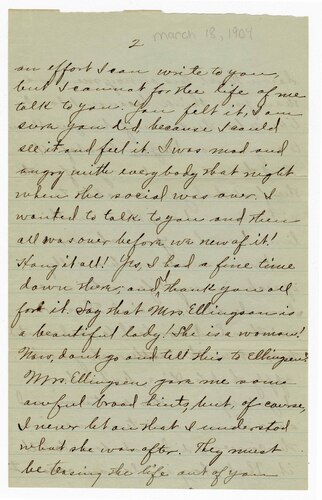 2
march 18, 1907
an effort I can write to you,
but I cannot for the life of me
talk to you. You felt it, I am
sure you did, because I could
see it and feel it. I was mad and
angry with everybody that night
when the social was over. I
wanted to talk to you and then
all was over before we new of it!
Hang it all! Yes, I had a fine time
down there, and I thank you all
for it. Say that Mrs Ellingson is
a beautiful lady! She is a woman!
Now, don't go and tell this to Ellingson!
Mrs. Ellingsen gave me some
awful broad hints, but, of course,
I never let on that I understood
what she was after. They must
be teasing the life out of you